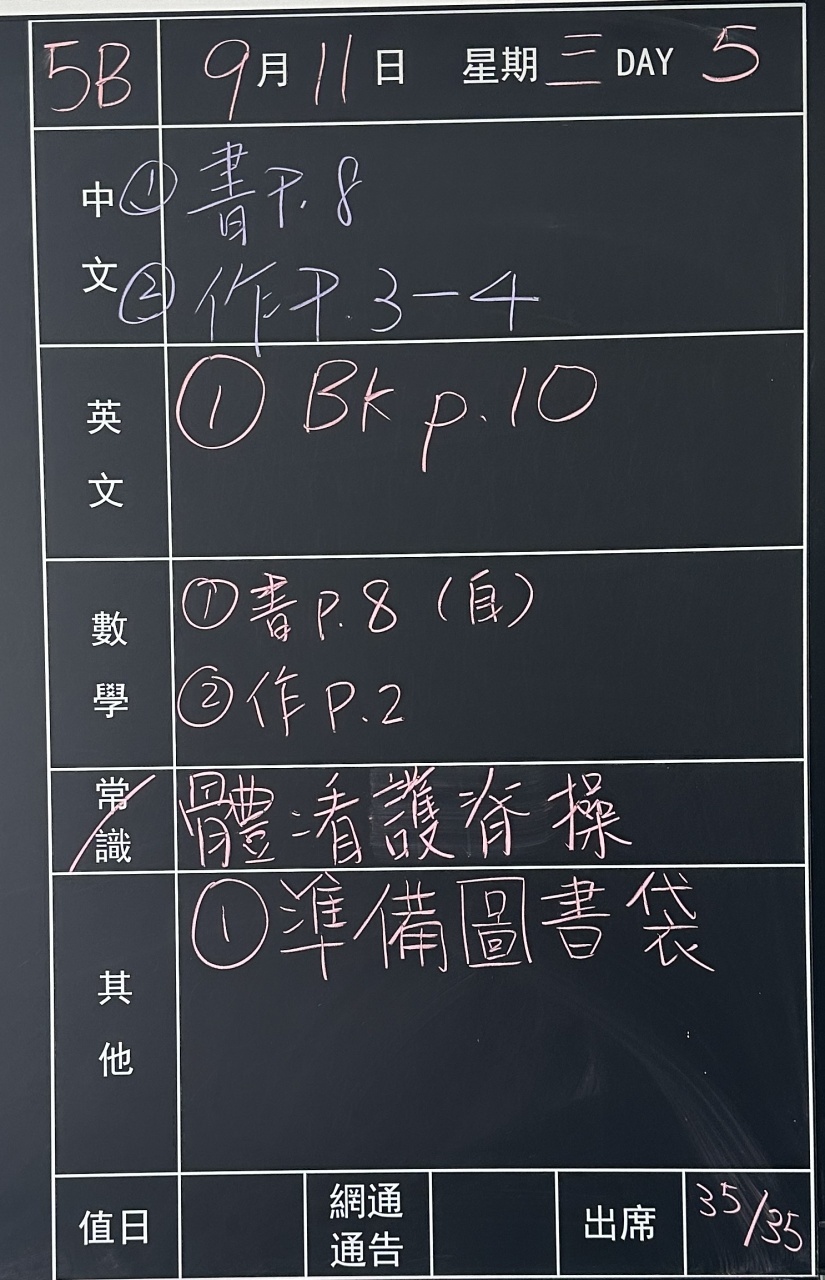 5B 9月11日 星期三 DAY 5
中文 ① 書P.8
② 作P.3-4
英文 ① Bk p.10
數學 ① 書P.8（自）
② 作P.2
常識 體：看護脊操
其他 ① 準備圖書袋
值日 網通通告 出席 35/35